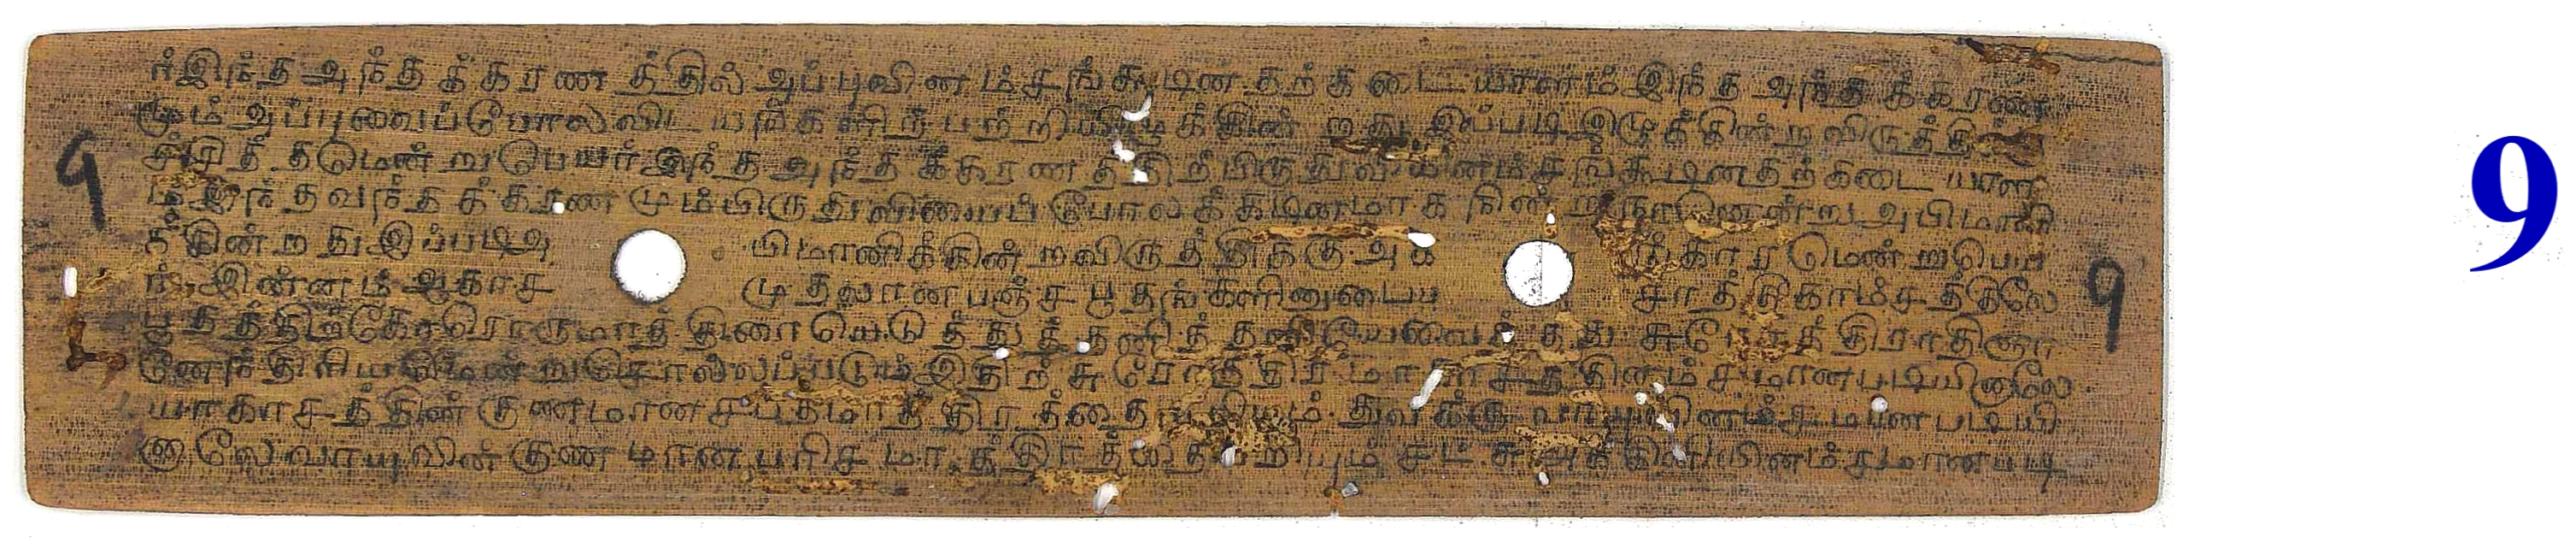 ர் இந்த அந்தக்கரணத்தில் அப்புவினம்சங் கூடினதற்கடையாளம் இந்த அந்தக்கரண
மும் அப்புவைப்போல விடயங்களிற் பற்றி யிழுக்கின்றது இப்படி இழுக்கின்ற விருத்தி
சித்தமென்று பெயர் இந்த அந்தக்கரணத்திற் பிருதுவியினம்சங் கூடினதற்கடையாள
ம் இந்தவந்தக்கரணமும் பிருதுவியைப் போலக் கடினமாக நின்று நானென்று அபிமானி
க்கின்றது இப்படி அ பிமானிக்கின்ற விருத்திக்கு அக ங்காரமென்று பெய
ர் இன்னம் ஆகாச முதலான பஞ்ச பூதங்களினுடைய சாத்திகாம்சத்திலே
பூதத்திற்கோரொரு மாத்திரை யெடுத்துத் தனித்தனியே வைத்தது சுரோத்திராதி ஞா
னேந்திரியமென்று சொல்லப்படும் இதிற் சுரோத்திரம் ஆகாசத்தினம்சமானபடியினாலே
யாகாசத்தின் குணமான சப்தமாத்திரத்தை தறியும் துவக்கு வாயுவினம்சமானபடியி
னாலே வாயுவின் குணமான பரிசமாத்திரத்தை தறியும் சட்சு அக்கினியினம்சமானபடி
9
9
9